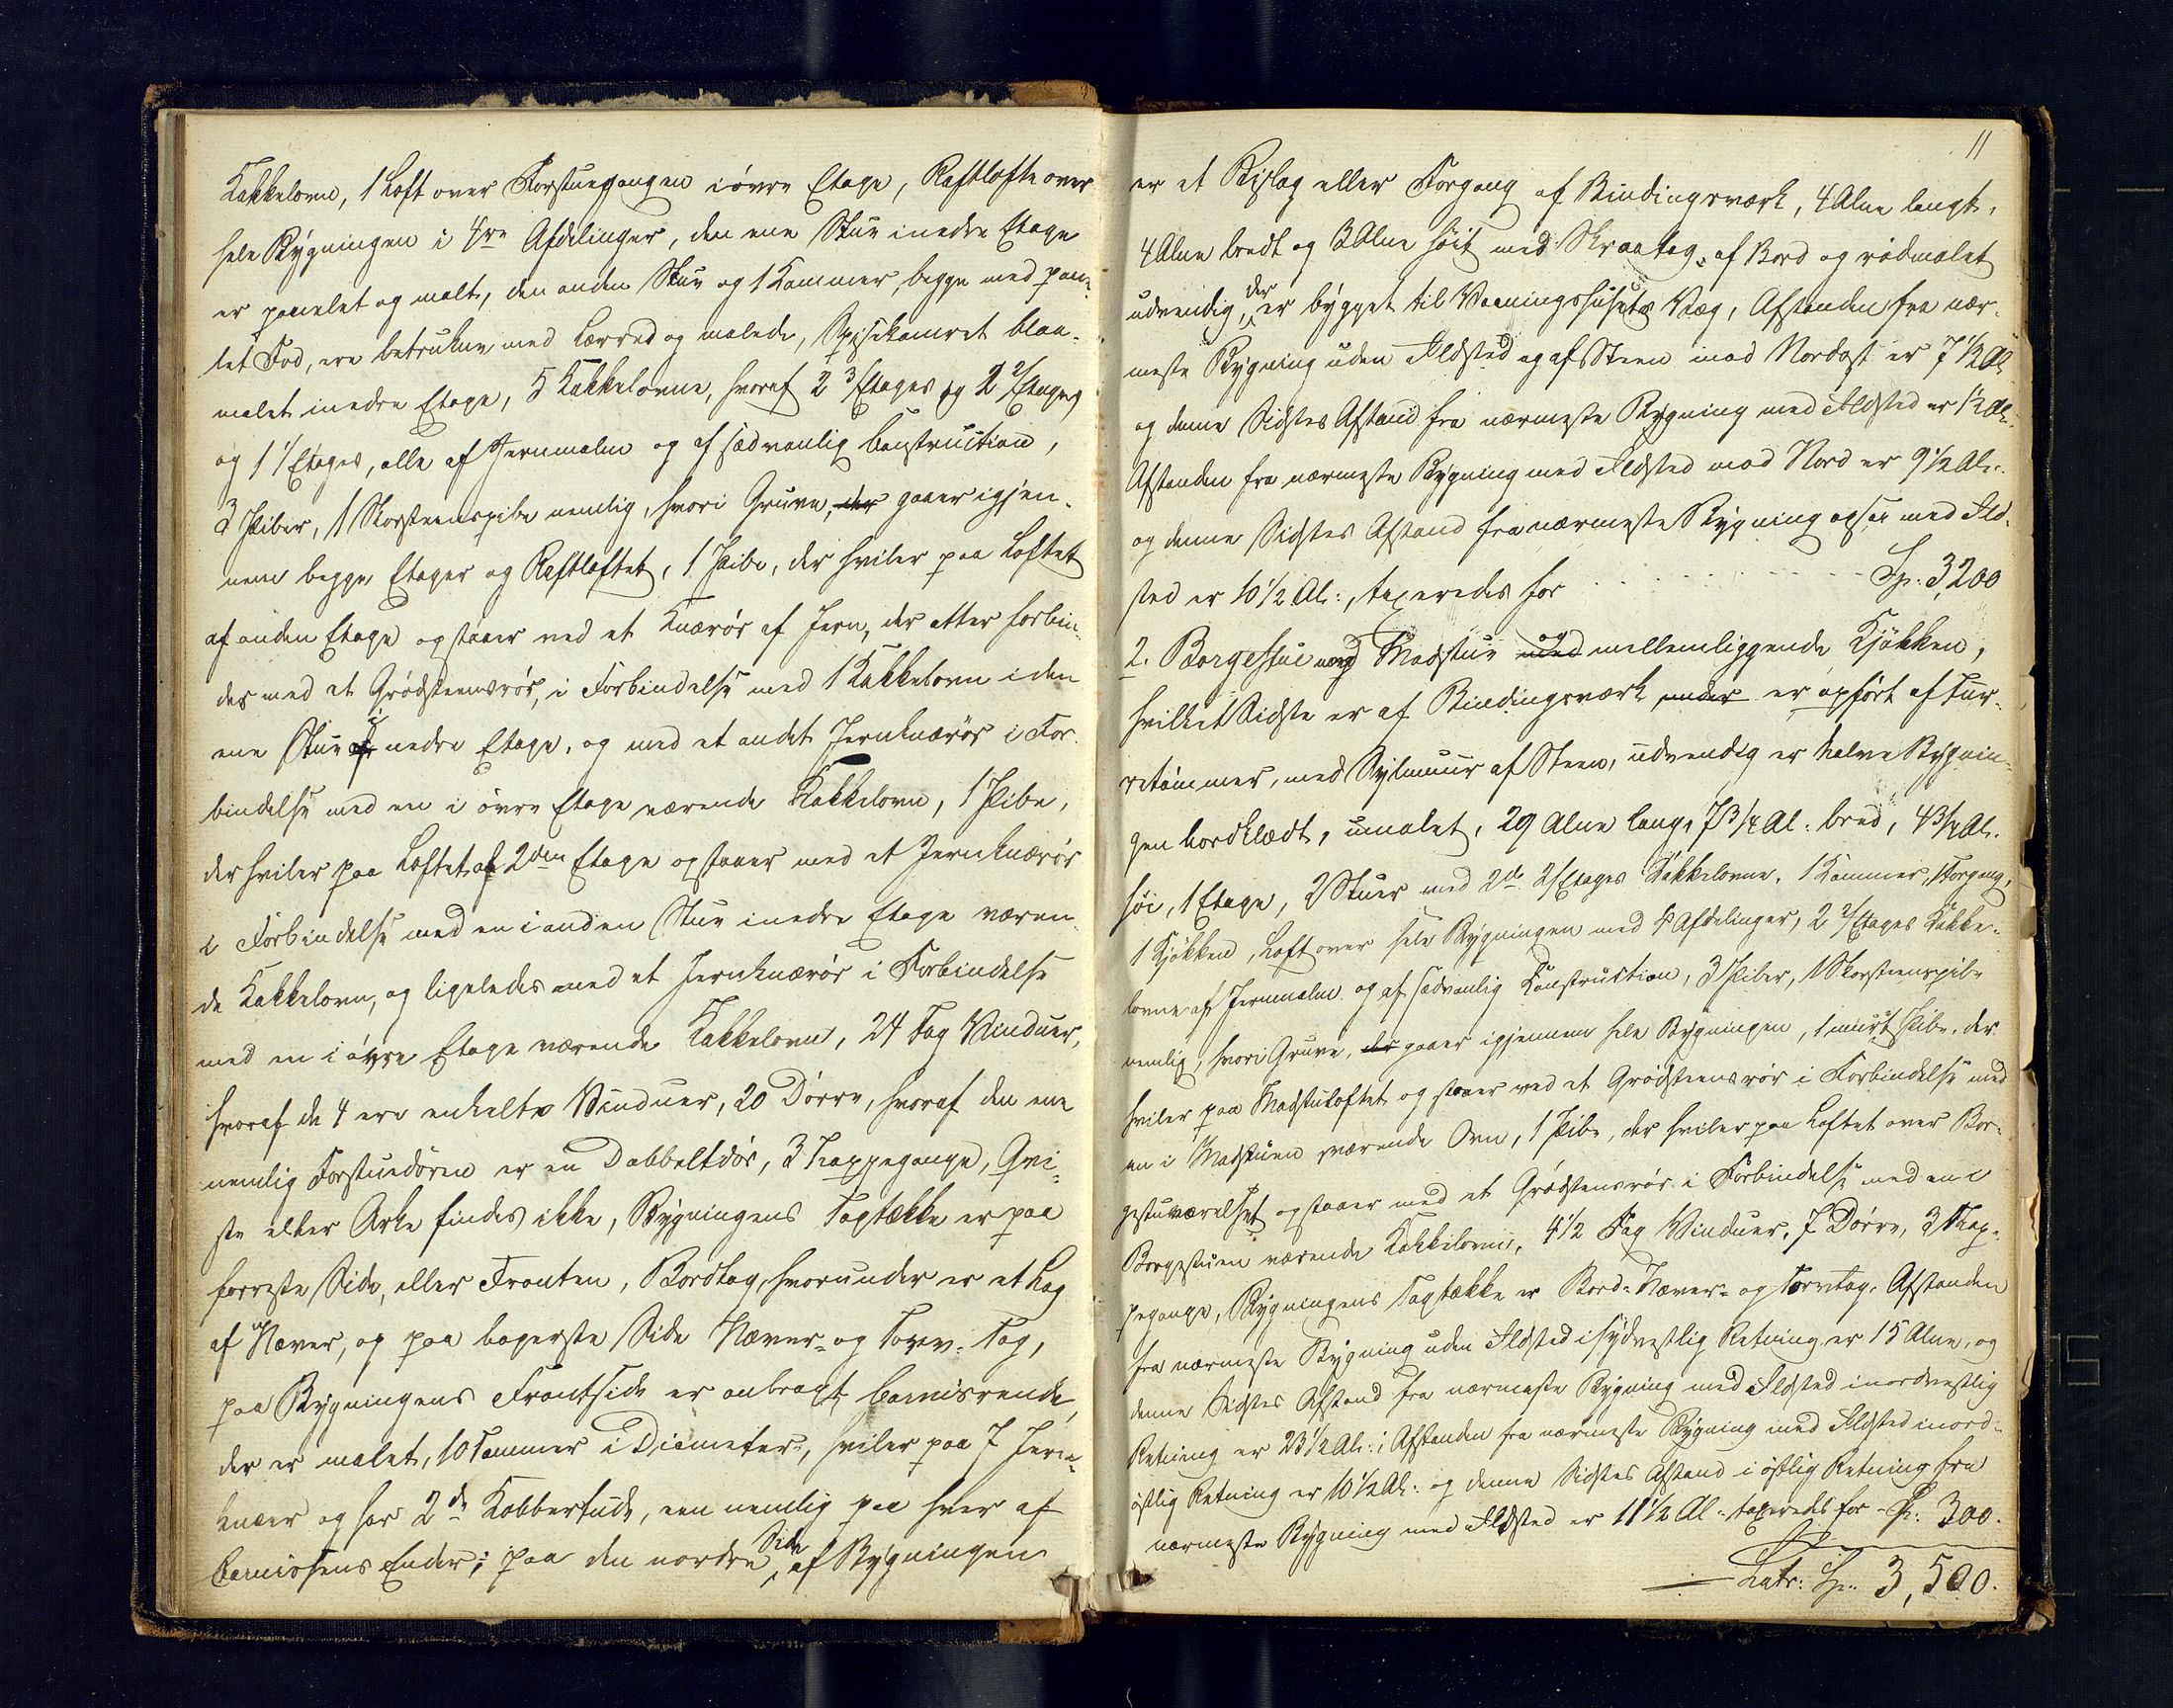 Kakkelovn, 1 Loft over Forstuegangen i øvre Etage, Røstlofte over
hele Bygningen i 4re Afdelinger, den ene Stue i nedre Etage
er panelet og malt, den anden Stue og 1 Kammer, begge med pane-
let Fod, ere betrukne med Lærred og malede, Spisekamret blaa-
malet i nedre Etage, 5 Kakkelovne, hvoraf 2 3/Etages og 2 2/Etages
og 1 1/Etages, alle af Jernmalm og af sædvanlig Construction,
3 Piber, 1 Skorsteenspibe nemlig, hvori Gruve, der gaaer igjen-
nem begge Etager og Røstloftet, 1 Pibe, der hviler paa Loftet
af anden Etage og staaer ved et Knærør af Jern, der atter forbin-
des med et Grødsteensrør, i Forbindelse med 1 Kakkelovn i den
ene Stue i nedre Etage, og med et andet Jernknærør i For-
bindelse med en i øvre Etage værende Kakkelovn, 1 Pibe,
der hviler paa Loftet af 2den Etage og staaer med et Jernknærør
i Forbindelse med en i anden Stue i nedre Etage væren-
de Kakkelovn, og ligeledes med et Jernknærør i Forbindelse
med en i øvre Etage værende Kakkelovn, 24 Fag Vinduer,
hvoraf de 4 ere enkelte Vinduer, 20 Dørre, hvoraf den ene
nemlig Forstuedøren er en Dobbeltdør, 3 Trappegange, Qvi-
ste eller Arke findes ikke, Bygningens Tagtække er paa
forreste Side, eller Fronten, Bordtag, hvorunder er et Lag
af Næver, og paa bagerste Side Næver- og Torv-Tag,
paa Bygningens Frontside er anbragt Cornisrende,
der er malet, 10 Tommer i Diameter, hviler paa 7 Jern-
knæer og har 2de Kobbertude, een nemlig paa hver af
Cornisens Ender; paa den nordre Side af Bygningen
11
er et Bislag eller Forgang af Bindingsværk, 4 Alne langt,
4 Alne bredt og 3 Alne høit med Skraatag af Bord og rødmalet
udvendig, der er bygget til Vaaningshusets Væg, Afstanden fra nær-
meste Bygning uden Ildsted og af Steen mod Nordost er 7 1/2 Al.
og denne Sidstes Afstand fra nærmeste Bygning med Ildsted er 1/2 Al.
Afstanden fra nærmeste Bygning med Ildsted mod Nord er 9 1/2 Al.
og denne Sidstes Afstand fra nærmeste Bygning ogsaa med Ild-
sted er 10 1/2 Al:, taxeredes for - - - - - Sp: 3,200
2. Borgestue med Madstue og mellemliggende Kjøkken,
hvilket Sidste er af Bindingsværk, er opført af Fur-
retømmer, med Sylmuur af Steen, udvendig er halve Bygnin-
gen bordklædt, umalet, 29 Alne lang, 7 3/4 Al: bred, 4 3/4 Al.
høi, 1 Etage, 2 Stuer med 2de 2/Etages Kakkelovne, 1 Kammer, 1 Forgang,
1 Kjøkken, Loft over hele Bygningen med 4 Afdelinger, 2 2/Etages Kakke-
lovne af Jernmalm og af sædvanlig Konstruction, 3 Piber, 1 Skorsteenspibe
nemlig, hvori Gruve, der gaaer igjennem hele Bygningen, 1 muret Pibe, der
hviler paa Madstuloftet og staaer ved et Grødsteensrør i Forbindelse med
en i Madstuen værende Ovn, 1 Pibe, der hviler paa Loftet over Bor-
gestuværelset og staaer med et Grødsteensrør i Forbindelse med en i
Borgestuen værende Kakkelovn, 4 1/2 Fag Vinduer, 7 Dørre, 3 Trap-
pegange, Bygningens Tagtække er Bord- Næver- og Torvtag. Afstanden
fra nærmeste Bygning uden Ildsted i sydvestlig Retning er 15 Alne, og
denne Sidstes Afstand fra nærmeste Bygning med Ildsted i nordvestlig
Retning er 23 1/2 Al:; Afstanden fra nærmeste Bygning med Ildsted i nord-
østlig Retning er 10 1/2 Al: og denne Sidstes Afstand i østlig Retning fra
nærmeste Bygning med Ildsted er 11 1/2 Al: taxeredes for - Sp: 300.
Latr: Sp: 3,500.